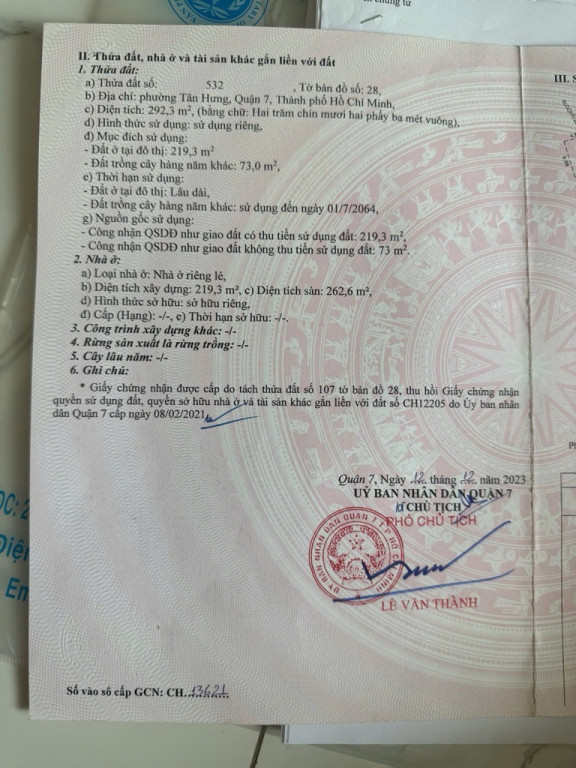 II. Thửa đất, nhà ở và tài sản khác gắn liền với đất
1. Thửa đất:
a) Thửa đất số: 532 , Tờ bản đồ số: 28,
b) Địa chỉ: phường Tân Hưng, Quận 7, Thành phố Hồ Chí Minh,
c) Diện tích: 292,3 m², (bằng chữ: Hai trăm chín mươi hai phẩy ba mét vuông),
d) Hình thức sử dụng: sử dụng riêng,
đ) Mục đích sử dụng:
- Đất ở tại đô thị: 219,3 m²
- Đất trồng cây hàng năm khác: 73,0 m²,
e) Thời hạn sử dụng:
- Đất ở tại đô thị: Lâu dài,
- Đất trồng cây hàng năm khác: sử dụng đến ngày 01/7/2064,
g) Nguồn gốc sử dụng:
- Công nhận QSDĐ như giao đất có thu tiền sử dụng đất: 219,3 m²,
- Công nhận QSDĐ như giao đất không thu tiền sử dụng đất: 73 m².
2. Nhà ở:
a) Loại nhà ở: Nhà ở riêng lẻ,
b) Diện tích xây dựng: 219,3 m², c) Diện tích sàn: 262,6 m²,
d) Hình thức sở hữu: sở hữu riêng,
đ) Cấp (Hạng): -/-, e) Thời hạn sở hữu: -/-.
3. Công trình xây dựng khác: -/-
4. Rừng sản xuất là rừng trồng: -/-
5. Cây lâu năm: -/-
6. Ghi chú:
* Giấy chứng nhận được cấp do tách thửa đất số 107 tờ bản đồ 28, thu hồi Giấy chứng nhận
quyền sử dụng đất, quyền sở hữu nhà ở và tài sản khác gắn liền với đất số CH12205 do Ủy ban nhân
dân Quận 7 cấp ngày 08/02/2021
Quận 7, Ngày 12 tháng 12 năm 2023
UỶ BAN NHÂN DÂN QUẬN 7
CHỦ TỊCH
PHÓ CHỦ TỊCH
LÊ VĂN THÀNH
Số vào sổ cấp GCN: CH 13621
III.